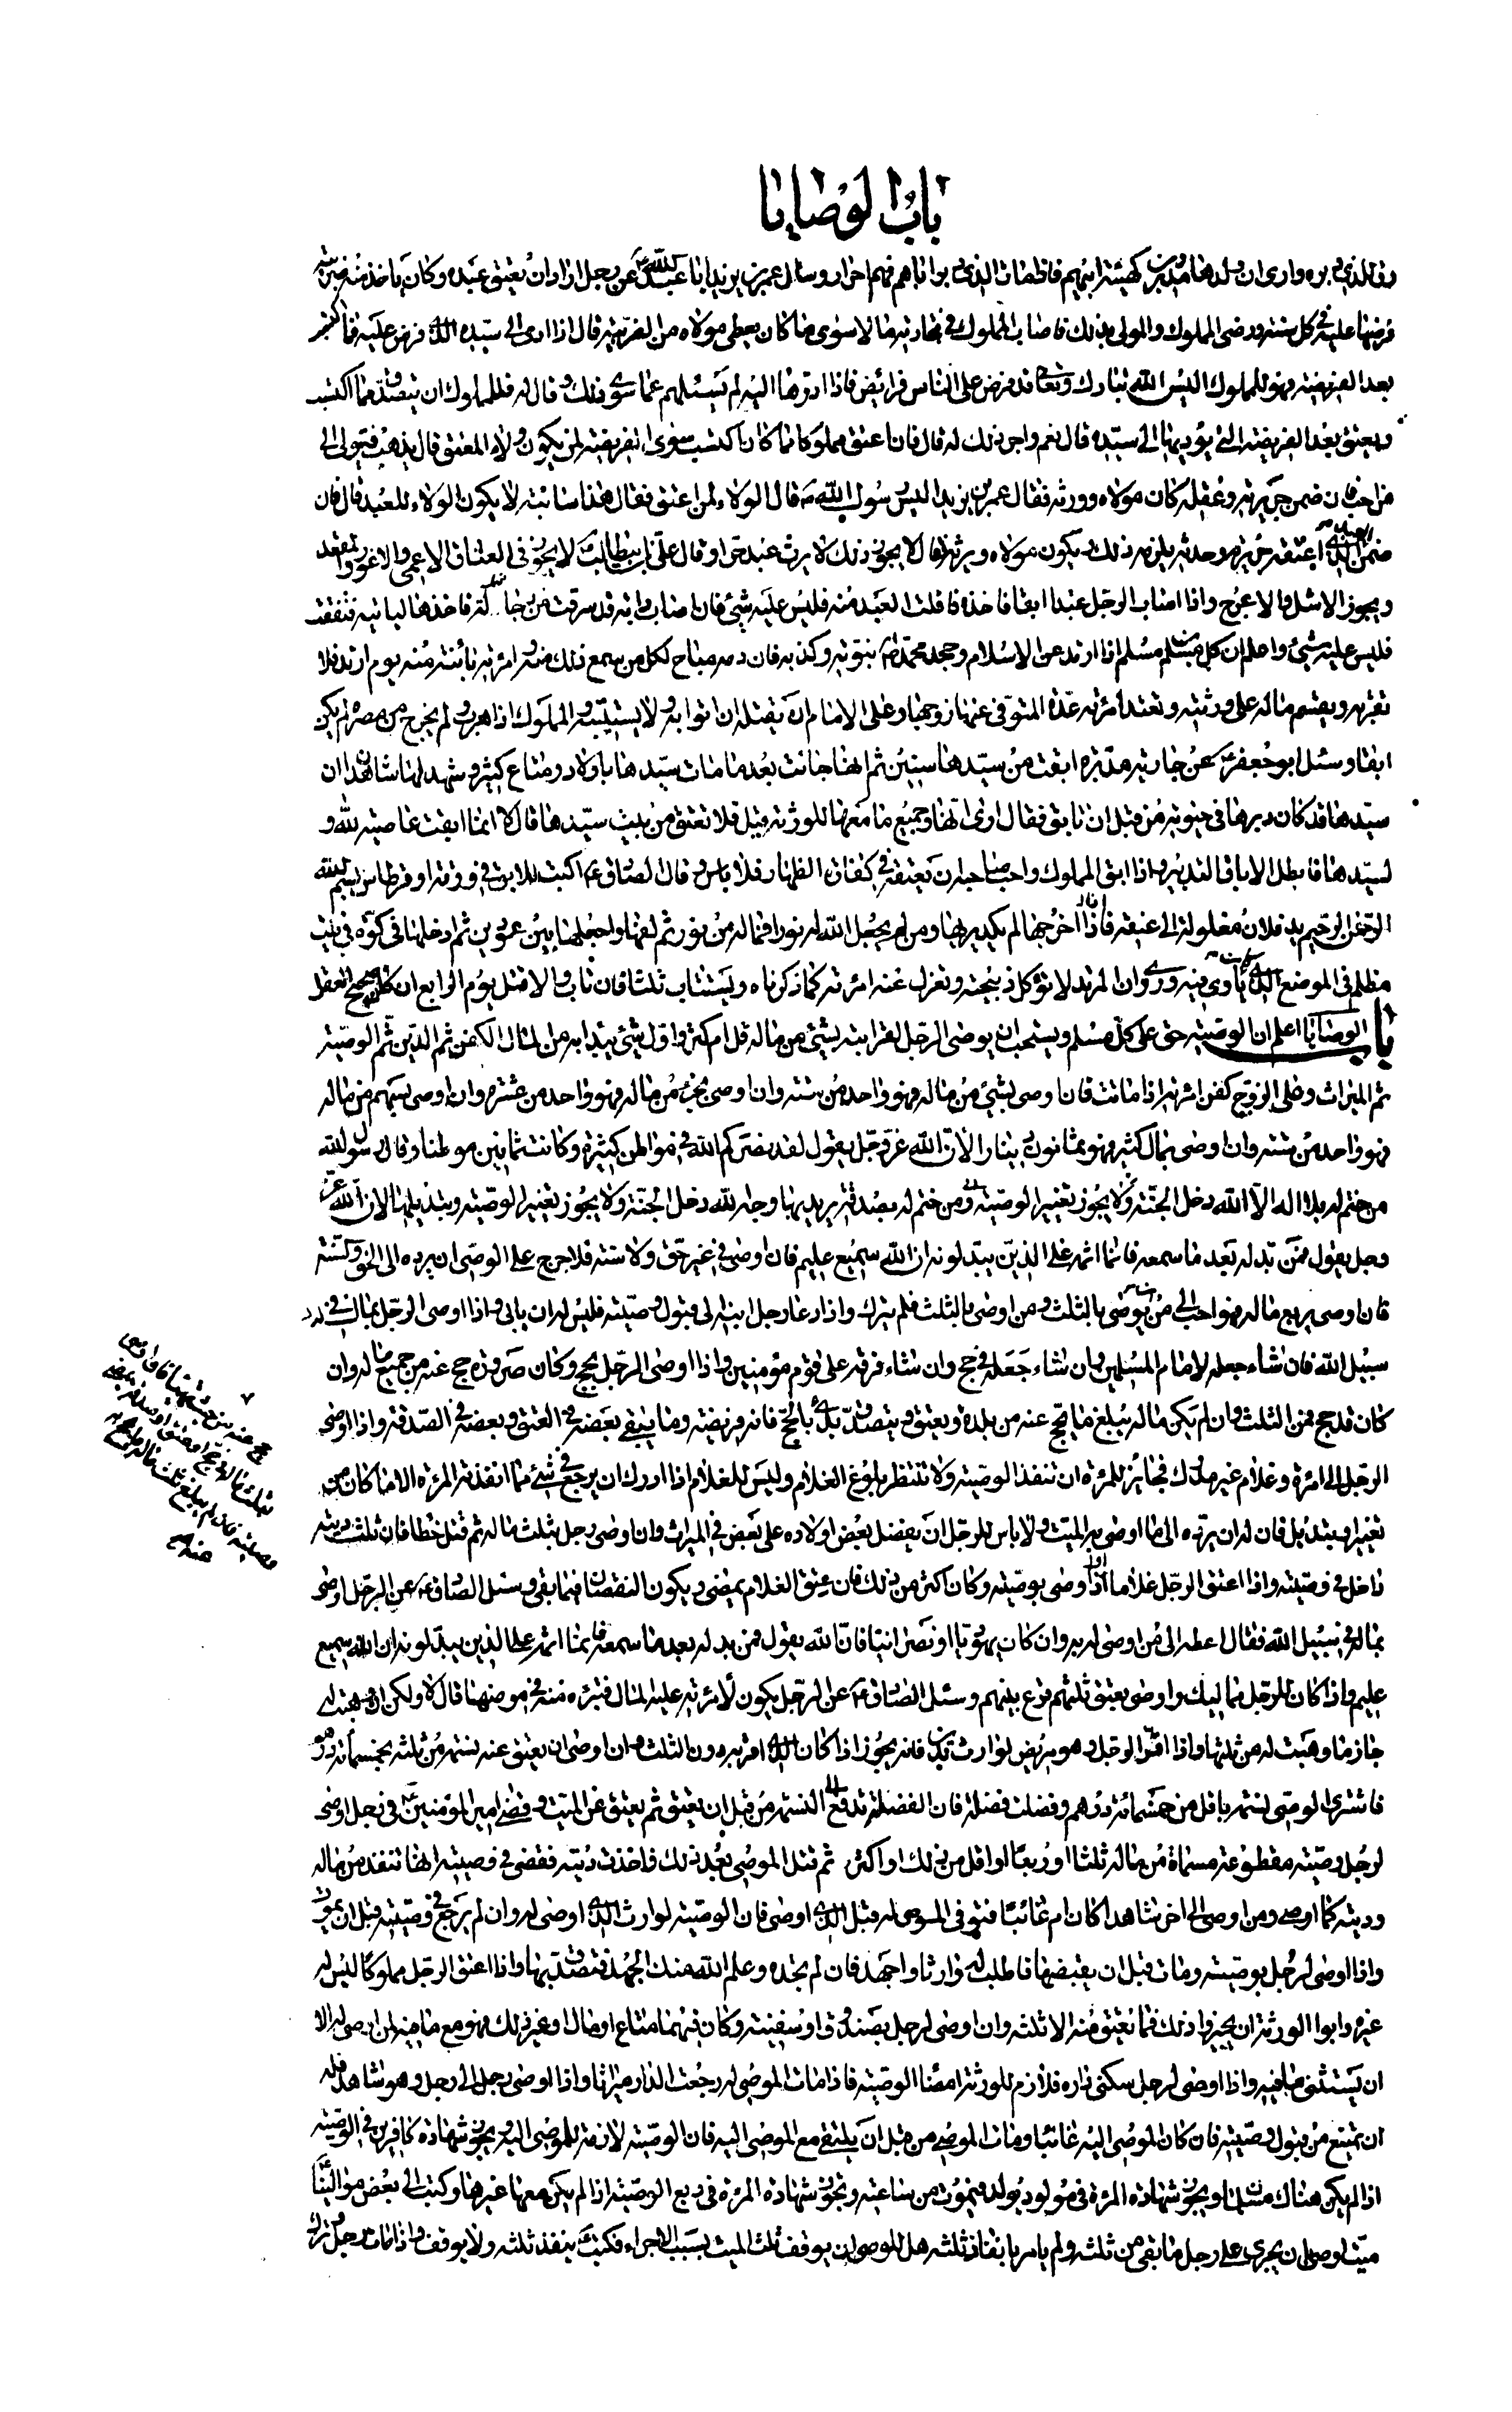 باب الوصايا
في الذي بره وارى ان ولدها مدبرين كهيئة ابيهم فاذا مات الذي دبر اباهم فهم احرار وسأل عمر بن يزيد ابا عبد الله عن رجل اراد ان يعتق عبده وكان ياخذ منه ضريبته
فرضها عليه في كل سنة ورضى المملوك والمولى بذلك فاصاب المملوك في تجارته مالا سوى ما كان يعطى مولاه من الضريبة قال اذا ادى الى سيده الذي فرض عليه فما اكتسب
بعد الفريضة فهو للمملوك اليس الله تبارك وتعالى قد فرض على الناس فرائض فاذا ادوها اليه لم يسئلهم عما سوى ذلك وقال له فللمملوك ان يتصدق مما اكتسب
ويعتق بعد الفريضة التي يؤديها الى سيده قال نعم واجر ذلك له قال فان اعتق مملوكا مما كان اكتسب سوى الفريضة لمن يكون ولاء المعتق قال يذهب فيتولى الى
من احب فان ضمن جريرته وعقله كان مولاه وورثه فقال عمر بن يزيد اليس رسول الله ص قال الولاء لمن اعتق فقال هذا سائبة لا يكون الولاء للعبد قال فان
ضمن العبد الذي اعتقه جريرته وحدثه يلزمه ذلك ويكون مولاه ويرثه قال لا يجوز ذلك لا يرث عبد حرا وقال علي بن ابيطالب لا يجوز في العتاق الاعمى والاعور والمقعد
ويجوز الاشل والاعرج واذا اصاب الرجل عبدا ابقا فاخذه فافلت العبد منه فليس عليه شيئ فان اصاب دابة قد سرقت من جار له فاخذها لياتيه فنفقت
فليس عليه شيئ واعلم ان كل مسلم بن مسلم اذا ارتد عن الاسلام وجحد محمدا ص نبوته وكذبه فان دمه مباح لكل من سمع ذلك منه وامرئته بائنة منه يوم ارتد فلا
تقربه ويقسم ماله على ورثته وتعتد امرئته عدة المتوفى عنها زوجها وعلى الامام ان يقتله ان اتوا به ولا يستتيبه والمملوك اذا هرب ولم يخرج من مصره لم يكن
ابقا وسئل ابو جعفر ع عن جارية مدبرة ابقت من سيدها سنين ثم انها جائت بعد ما مات سيدها باولاد ومتاع كثير وشهد لها شاهدان ان
سيدها قد كان دبرها في حيوته من قبل ان تابق فقال ارى انها وجميع ما معها للورثة قيل فلا تعتق من ثلث سيدها قال لا انما ابقت عاصية لله و
لسيدها فابطل الاباق التدبير واذا ابق المملوك واحب صاحبه ان يعتقه في كفارة الظهار فلا باس وقال الصادق ع اكتب للابق في ورقة او قرطاس بسم الله
الرحمن الرحيم يد فلان مغلولة الى عنقه فاذا اخرجها لم يكد يريها ومن لم يجعل الله له نورا فما له من نور ثم لفها واجعلها بين عودين ثم ادخلها في كوة في بيت
مظلم في الموضع الذي كان ياوى فيه وروى ان المرتد لا تؤكل ذبيحته وتعزل عنه امرئته كما ذكرناه ويستتاب ثلثا فان تاب والا قتل يوم الرابع ان كان صحيح العقل
باب الوصايا اعلم ان الوصية حق على كل مسلم ويستحب ان يوصى الرجل لقرابته بشيئ من ماله قل ام كثر واول شيئ يبدا به من المال الكفن ثم الدين ثم الوصية
ثم الميراث وعلى الزوج كفن امرئته اذا ماتت فان اوصى بشيئ من ماله فهو واحد من ستة وان اوصى بجزء من ماله فهو واحد من عشرة وان اوصى بسهم من ماله
فهو واحد من ستة وان اوصى بمال كثير فهو ثمانون دينارا لان الله عز وجل يقول لقد نصركم الله في مواطن كثيرة وكانت ثمانين موطنا وقال رسول الله
من ختم له بلا اله الا الله دخل الجنة ومن ختم له بصدقة يريد بها وجه الله دخل الجنة ولا يجوز تغيير الوصية وتبديلها لان الله عز
وجل يقول فمن بدله بعد ما سمعه فانما اثمه على الذين يبدلونه ان الله سميع عليم فان اوصى في غير حق ولا سنة فلا حرج على الوصى ان يرده الى الحق والسنة
فان اوصى بربع ماله فهو احب الى من ان يوصى بالثلث ومن اوصى بالثلث فلم يترك واذا دعا رجل ابنه الى قبول وصيته فليس له ان يابى واذا اوصى الرجل بمال في
سبيل الله فان شاء جعله لامام المسلمين وان شاء جعله في حج وان شاء فرقه على قوم مؤمنين واذا اوصى الرجل بحج وكان صرورة حج عنه من جميع ماله وان
كان قد حج فمن الثلث وان لم يكن ماله يبلغ ما يحج عنه من بلده ويعتق ويتصدق بدئ بالحج فانه فريضة وما بقى بعضه في العتق وبعضه في الصدقة واذا اوصى
الرجل الى امرئة وغلام غير مدرك فجائز للمرئة ان تنفذ الوصية ولا تنتظر بلوغ الغلام وليس للغلام اذا ادرك ان يرجع في شئ مما انفذته المرئة الا ما كان من
تغيير او تبديل فان له ان يرده الى ما اوصى به الميت ولا باس للرجل ان يفضل بعض اولاده على بعض في الميراث وان اوصى رجل بثلث ماله ثم قتل خطا فان ثلث ديته
داخل في وصيته واذا اعتق الرجل غلاما او اوصى بوصيته وكان اكثر من ذلك فان عتق الغلام يمضى ويكون النقصان فيما بقى وسئل الصادق ع عن الرجل اوصى
بماله في سبيل الله فقال اعطه الى من اوصى له به وان كان يهوديا او نصرانيا فان الله يقول فمن بدله بعد ما سمعه فانما اثمه على الذين يبدلونه ان الله سميع
عليم واذا كان للرجل مماليك واوصى بعتق ثلثهم اقرع بينهم وسئل الصادق ع عن الرجل يكون لامرئته عليه المال فتبرئه منه في مرضها قال لا ولكن ان وهبت له
جاز ما وهبت له من ثلثها واذا اقر الرجل وهو مريض لوارث بدين فانه يجوز اذا كان الذي اقر به دون الثلث وان اوصى ان يعتق عنه نسمة من ثلثه بخمسمأة درهم
فاشترى الوصى نسمة باقل من خمسمأة درهم وفضلت فضلة فان الفضلة تدفع الى النسمة من قبل ان يعتق ثم يعتق عن الميت وقضى امير المؤمنين ع في رجل اوصى
لرجل وصية مقطوعة مسماة من ماله ثلثا او ربعا او اقل من ذلك او اكثر ثم قتل الموصى بعد ذلك فاخذت ديته فقضى في وصيته انها تنفذ من ماله
وديته كما اوصى ومن اوصى الى اخر شاهدا كان ام غائبا فتوفى الموصى له قبل الذي اوصى فان الوصية لوارث الذي اوصى له وان لم يرجع في وصيته قبل ان يموت
واذا اوصى لرجل بوصيته ومات قبل ان يقبضها فاطلب له وارثا واجهد فان لم تجده وعلم الله منك الجهد فتصدق بها واذا اعتق الرجل مملوكا ليس له
غيره وابوا الورثة ان يجيزوا ذلك فما يعتق منه الا ثلثه وان اوصى لرجل بصندوق او سفينة وكان فيهما متاع او مال او غير ذلك فهو مع ما فيه لمن اوصى له الا
ان يستثنى ما فيه واذا اوصى لرجل سكنى داره فلازم للورثة امضاء الوصية فاذا مات الموصى له رجعت الدار ميراثا واذا اوصى رجل الى رجل وهو شاهد فله
ان يمتنع من قبول وصيته فان كان الموصى اليه غائبا ومات الموصى من قبل ان يلتقى مع الموصى اليه فان الوصية لازمة للموصى اليه ويجوز شهادة كافرين في الوصية
اذا لم يكن هناك مسلمان ويجوز شهادة المرئة في مولود يولد فيموت من ساعته وتجوز شهادة المرئة في ربع الوصية اذا لم يكن معها غيرها وكتب الى بعض موالينا
ميت اوصى بان يجرى على رجل ما بقى من ثلثه ولم يامر بانفاذ ثلثه هل للوصى ان يوقف ثلث الميت بسبب الاجراء فكتب ينفذ ثلثه ولا يوقف واذا مات رجل وترك